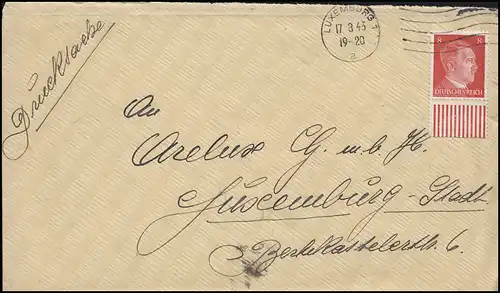 Drucksache
LUXEMBURG 1
17.3.43
19-20
a
8 8
DEUTSCHES REICH
An
Arelux G.m.b.H.
Luxemburg-Stadt
Bertkastelerstr. 6.